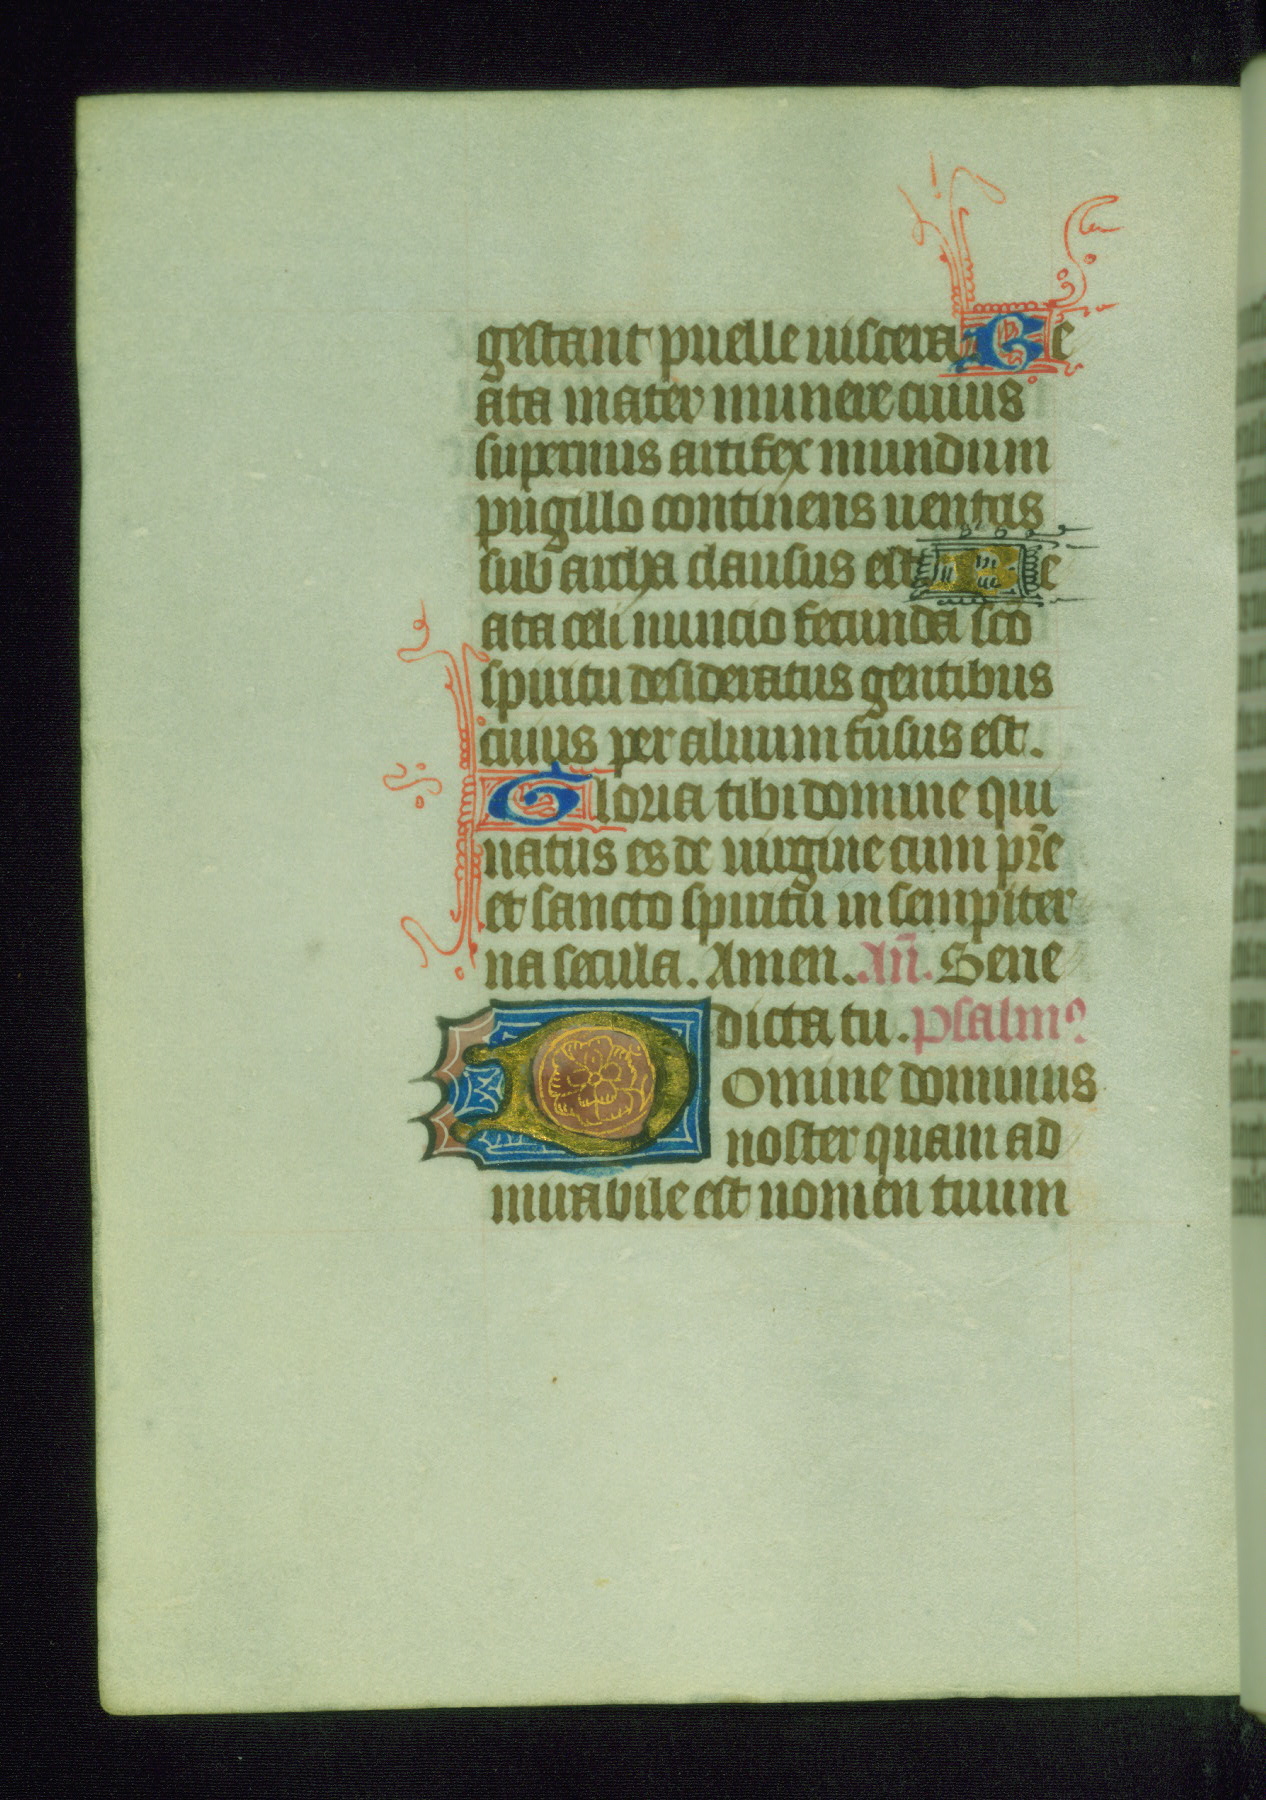 gestant puelle uiscera Be
ata mater munere cuius
supernus artifex mundum
pugillo continens uentris
sub archa clausus est Be
ata celi nuncio fecunda sco
spiritu desideratus gentibus
cuius per aluum fusus est.
Gloria tibi domine qui
natus es de uirgine cum pr̄e
et sancto spiritu in sempiter
na secula. Amen. An̄. Bene
dicta tu. psalmꝰ
Domine dominus
noster quam ad
mirabile est nomen tuum